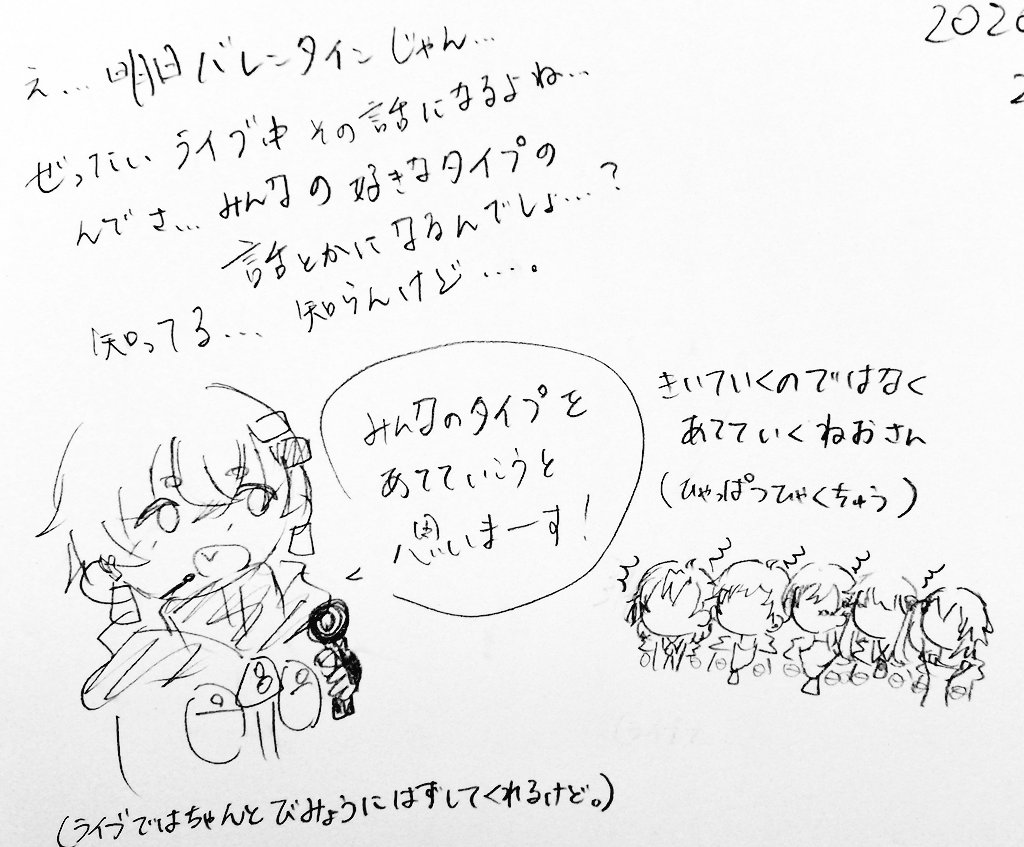 2020
2
え…明日バレンタインじゃん…
ぜったい ライブ中 その話になるよね…
んでさ…みんなの好きなタイプの
話とかになるんでしょ…?
知ってる… 知らんけど….。
みんなのタイプを
あてていこうと
思いまーす!
きいていくのではなく
あてていくねおさん
(ひゃっぱつひゃくちゅう)
(ライブではちゃんとびみょうにはずしてくれるけど。)